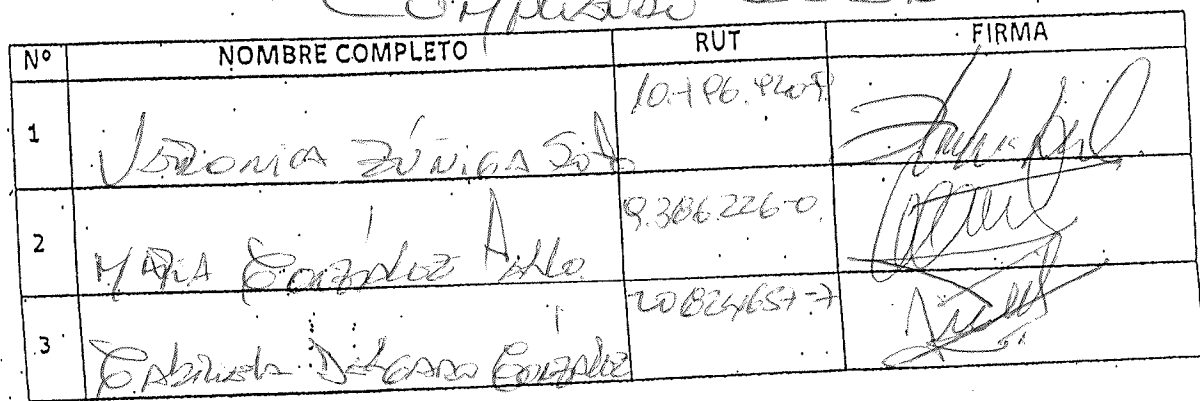 Nº NOMBRE COMPLETO RUT FIRMA
1 VERONICA ZÚÑIGA Soto
2 MARIA GONZALEZ 9.386.226-0
3 GABRIELA DELGADO GONZALEZ 20824657-7